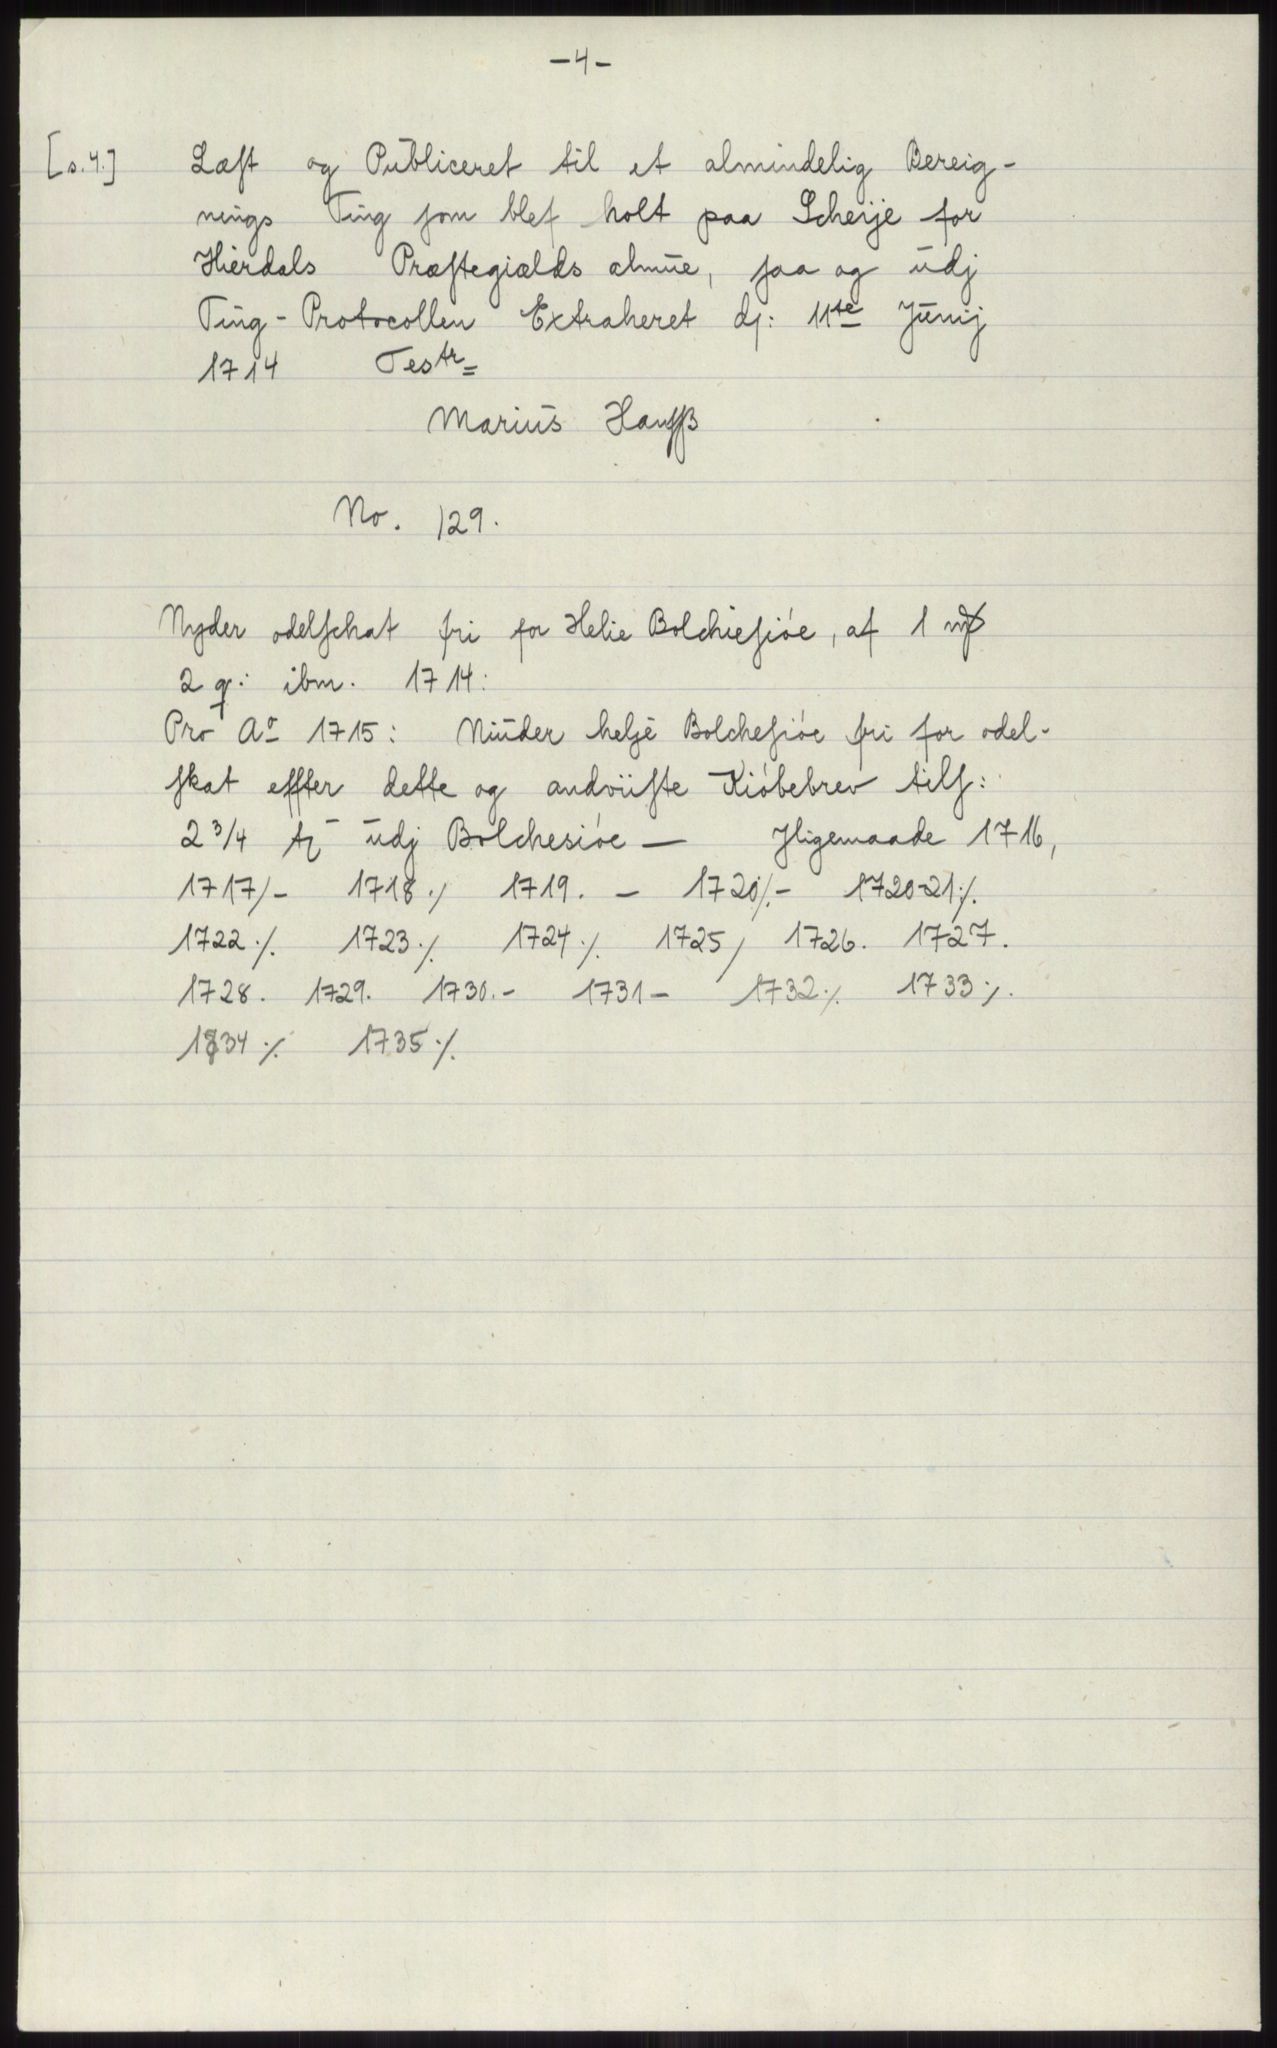 -4-
[s.4.] Læst og Publiceret til et almindelig Bereig-
nings Ting som blef holt paa Scheije for
Hierdals Præstegiælds almue, saa og udj
Ting-Protocollen Extraheret dj: 11te Junij
1714 Testr=
Marius Hansß
No. 129.
Nyder odelschat fri for Helie Bolchiesiøe, af 1
2 q: ibm. 1714:
Pro Ao 1715: Niuder helje Bolchesiøe fri for odel-
skat effter dette og andviiste Kiøbebrev tils:
2 3/4 udj Bolchesiøe — Jligemaade 1716,
1717/- 1718 ./ 1719. - 1720/.- 1720-21 ./.
1722 ./. 1723 ./. 1724 ./. 1725/ 1726. 1727.
1728. 1729. 1730.- 1731- 1732 ./. 1733 ./.
1734 ./. 1735 ./.